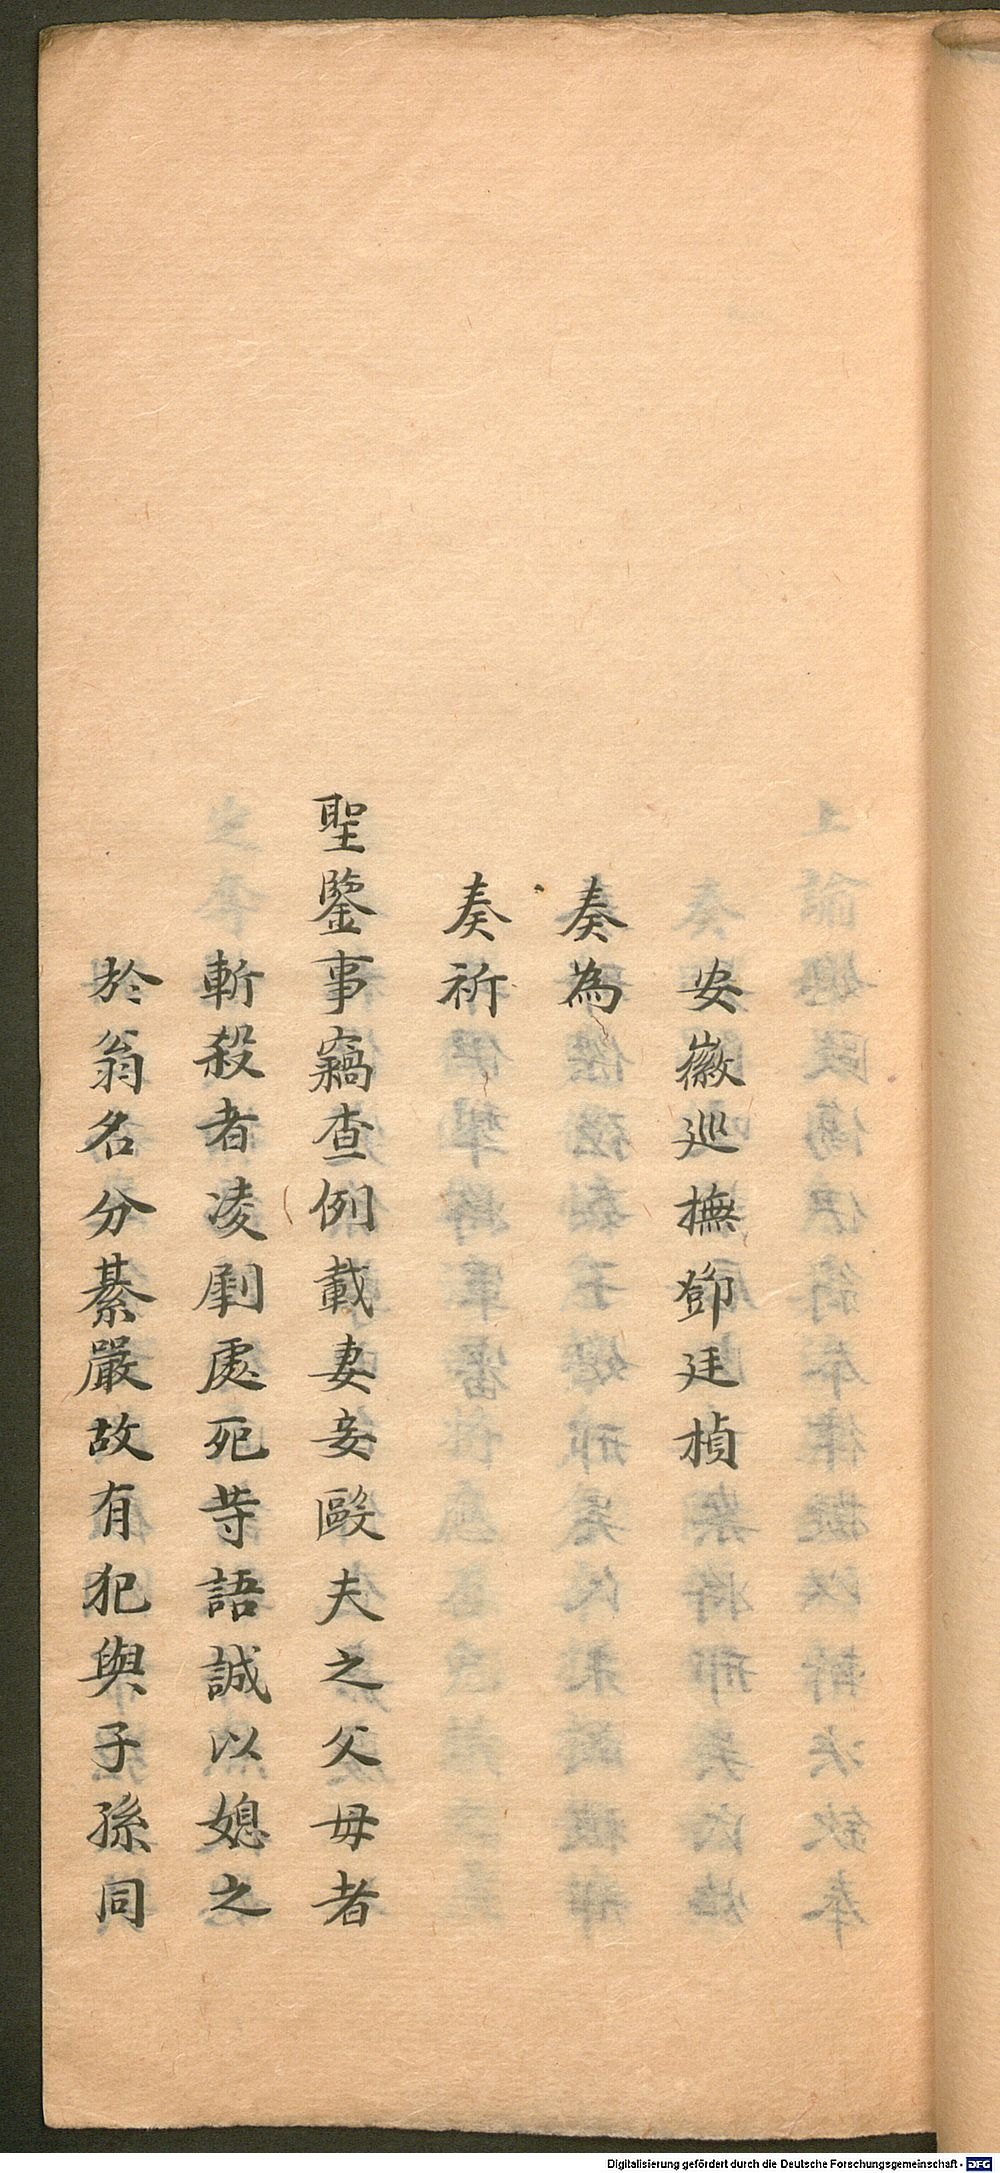 安徽巡撫鄧廷楨
奏為
奏祈
聖鑒事竊查例載妻妾毆夫之父母者
斬殺者凌剮處死等語誠以媳之
於翁名分綦嚴故有犯與子孫同
Digitalisierung gefördert durch die Deutsche Forschungsgemeinschaft - DFG